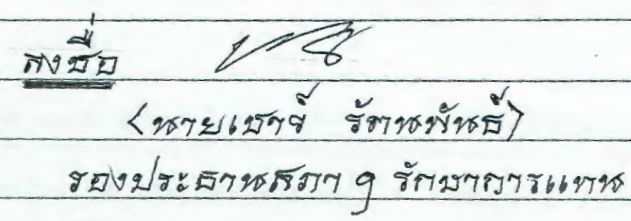 ลงชื่อ
(นายเชาว์ รัตนพันธ์)
รองประธานสภา ๆ รักษาการแทน